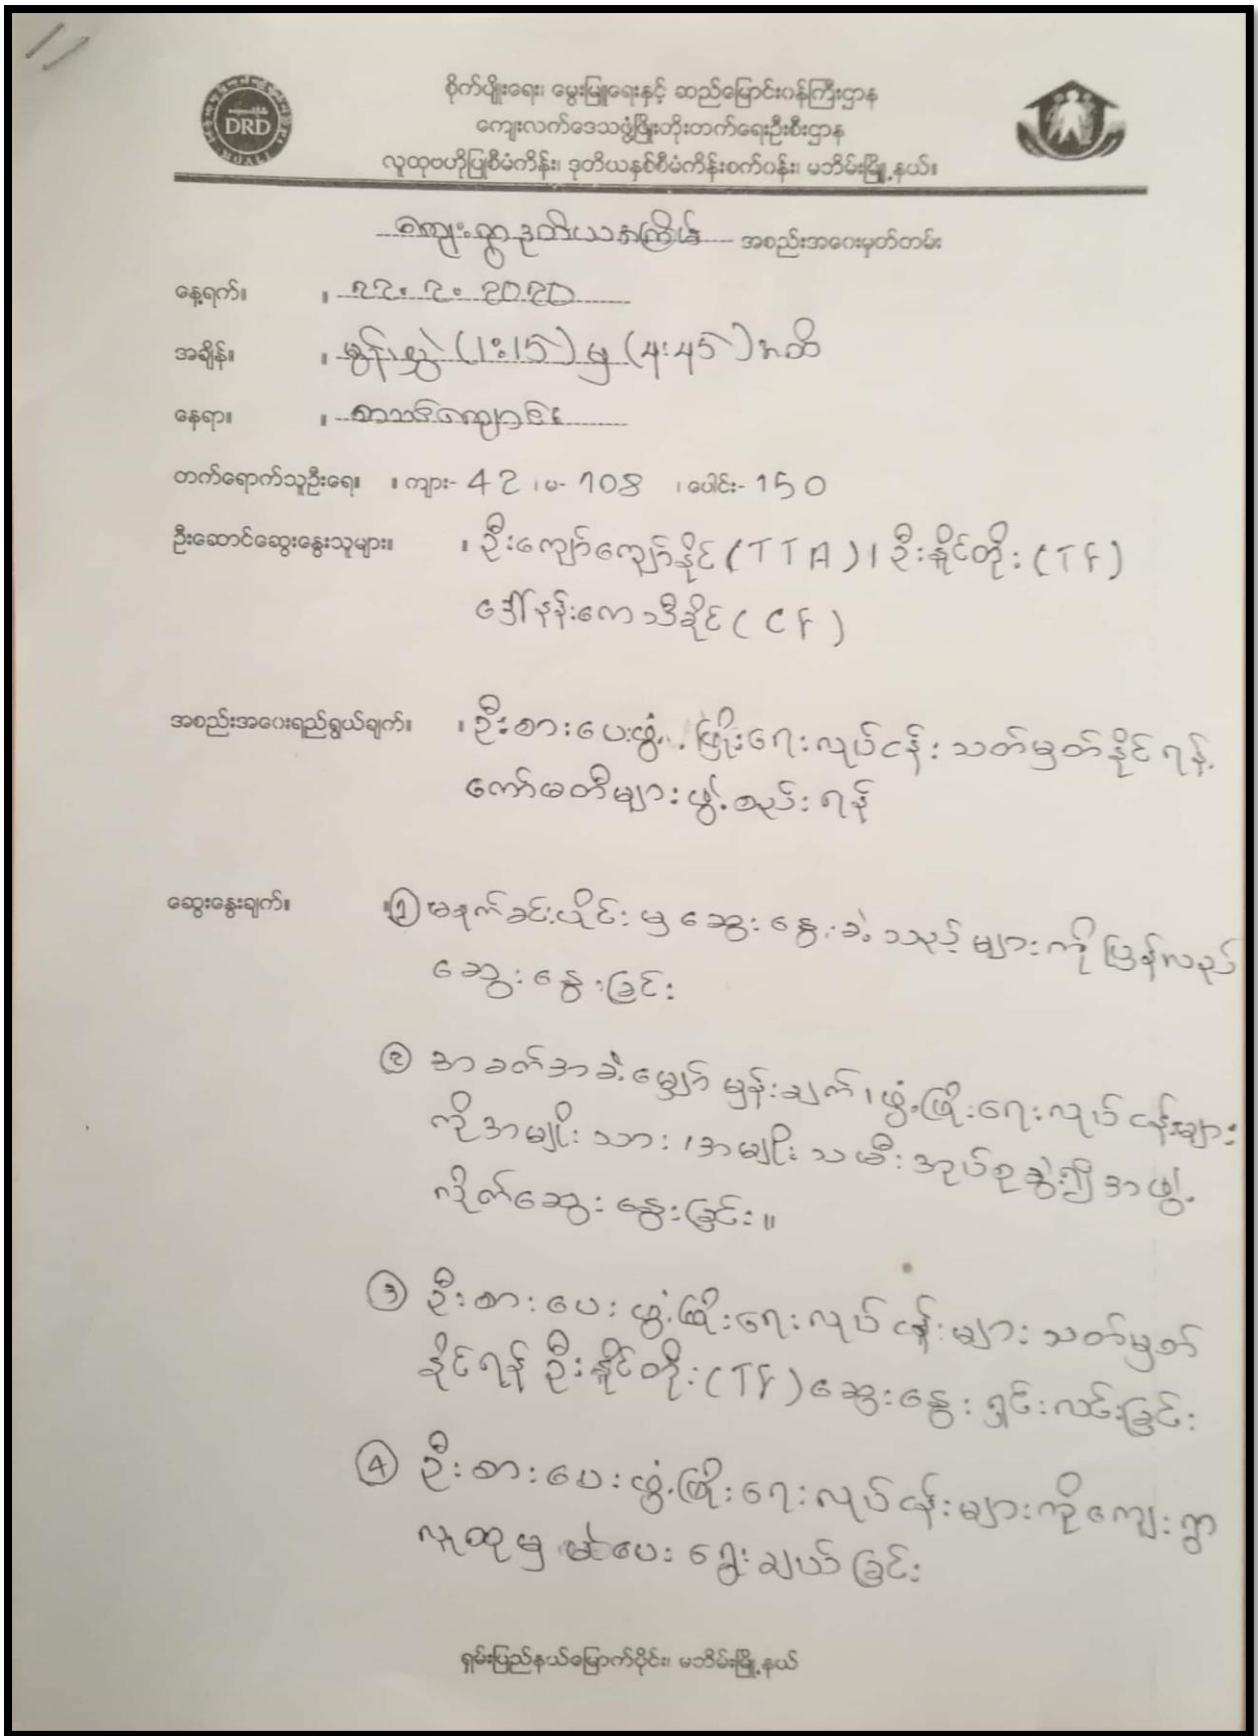 စိုက်ပျိုးရေး၊ မွေးမြူရေးနှင့် ဆည်မြောင်းဝန်ကြီးဌာန
DRD
ကျေးလက်ဒေသဖွံ့ဖြိုးတိုးတက်ရေးဦးစီးဌာန
လူထုဗဟိုပြုစီမံကိန်း၊ ဒုတိယနှစ်စီမံကိန်းစက်ဝန်း၊ မဘိမ်းမြို့နယ်။
ကျေးရွာဒုတိယအကြိမ် အစည်းအဝေးမှတ်တမ်း
နေ့ရက်။ ။ ၂၂. ၂. ၂၀၂၀
အချိန်။ ။ မွန်းလွဲ (1:15) မှ (4:45) အထိ
နေရာ။ ။ စာသင်ကျောင်း
တက်ရောက်သူဦးရေ။ ။ ကျား- 42 ၊ မ- 108 ၊ ပေါင်း- 150
ဦးဆောင်ဆွေးနွေးသူများ။ ။ ဦးကျော်ကျော်နိုင် (TTA) ၊ ဦးနိူင်တိုး (TF)
ဒေါ်နန်းကေသီခိုင် (CF)
အစည်းအဝေးရည်ရွယ်ချက်။ ။ ဦးစားပေးဖွံ့ဖြိုးရေးလုပ်ငန်း သတ်မှတ်နိုင်ရန်
ကော်မတီများဖွဲ့စည်းရန်
ဆွေးနွေးချက်။ ။ ① မနက်ခင်းပိုင်းမှ ဆွေးနွေးခဲ့သည့်များကို ပြန်လည်
ဆွေးနွေးခြင်း
② အခက်အခဲ၊ မျှော်မှန်းချက်၊ ဖွံ့ဖြိုးရေးလုပ်ငန်းများ
ကို အမျိုးသား၊ အမျိုးသမီး အုပ်စုခွဲ၍ အဖွဲ့
လိုက်ဆွေးနွေးခြင်း။
③ ဦးစားပေးဖွံ့ဖြိုးရေးလုပ်ငန်းများ သတ်မှတ်
နိုင်ရန် ဦးနိူင်တိုး (TF) ဆွေးနွေးရှင်းလင်းခြင်း
④ ဦးစားပေးဖွံ့ဖြိုးရေးလုပ်ငန်းများကို ကျေးရွာ
လူထုမှ မဲပေးရွေးချယ်ခြင်း
ရှမ်းပြည်နယ်မြောက်ပိုင်း၊ မဘိမ်းမြို့နယ်